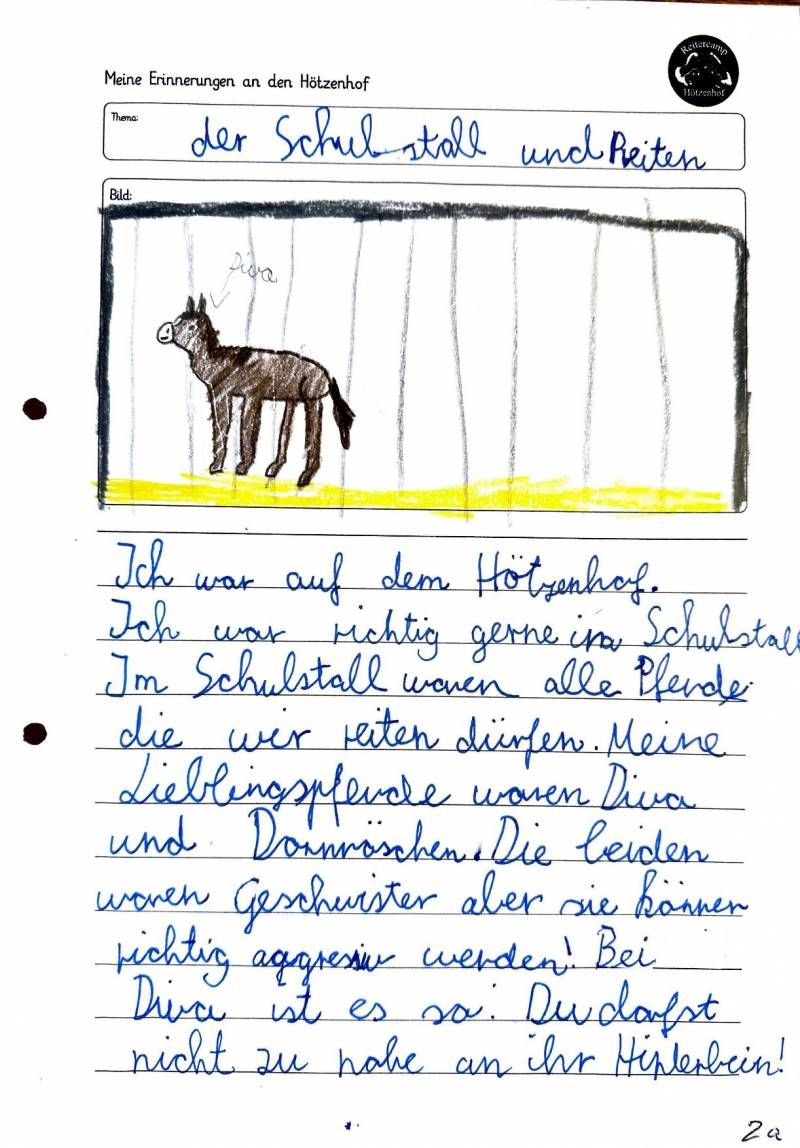 Reitercamp
Hötzenhof
Meine Erinnerungen an den Hötzenhof
Thema:
der Schulstall und Reiten
Bild:
Diva
Ich war auf dem Hötzenhof.
Ich war richtig gerne im Schulstall
Im Schulstall waren alle Pferde
die wir reiten dürfen. Meine
Lieblingspferde waren Diva
und Dornröschen. Die beiden
waren Geschwister aber sie können
richtig aggresiv werden! Bei
Diva ist es so: Du darfst
nicht zu nahe an ihr Hinterbein!
2a